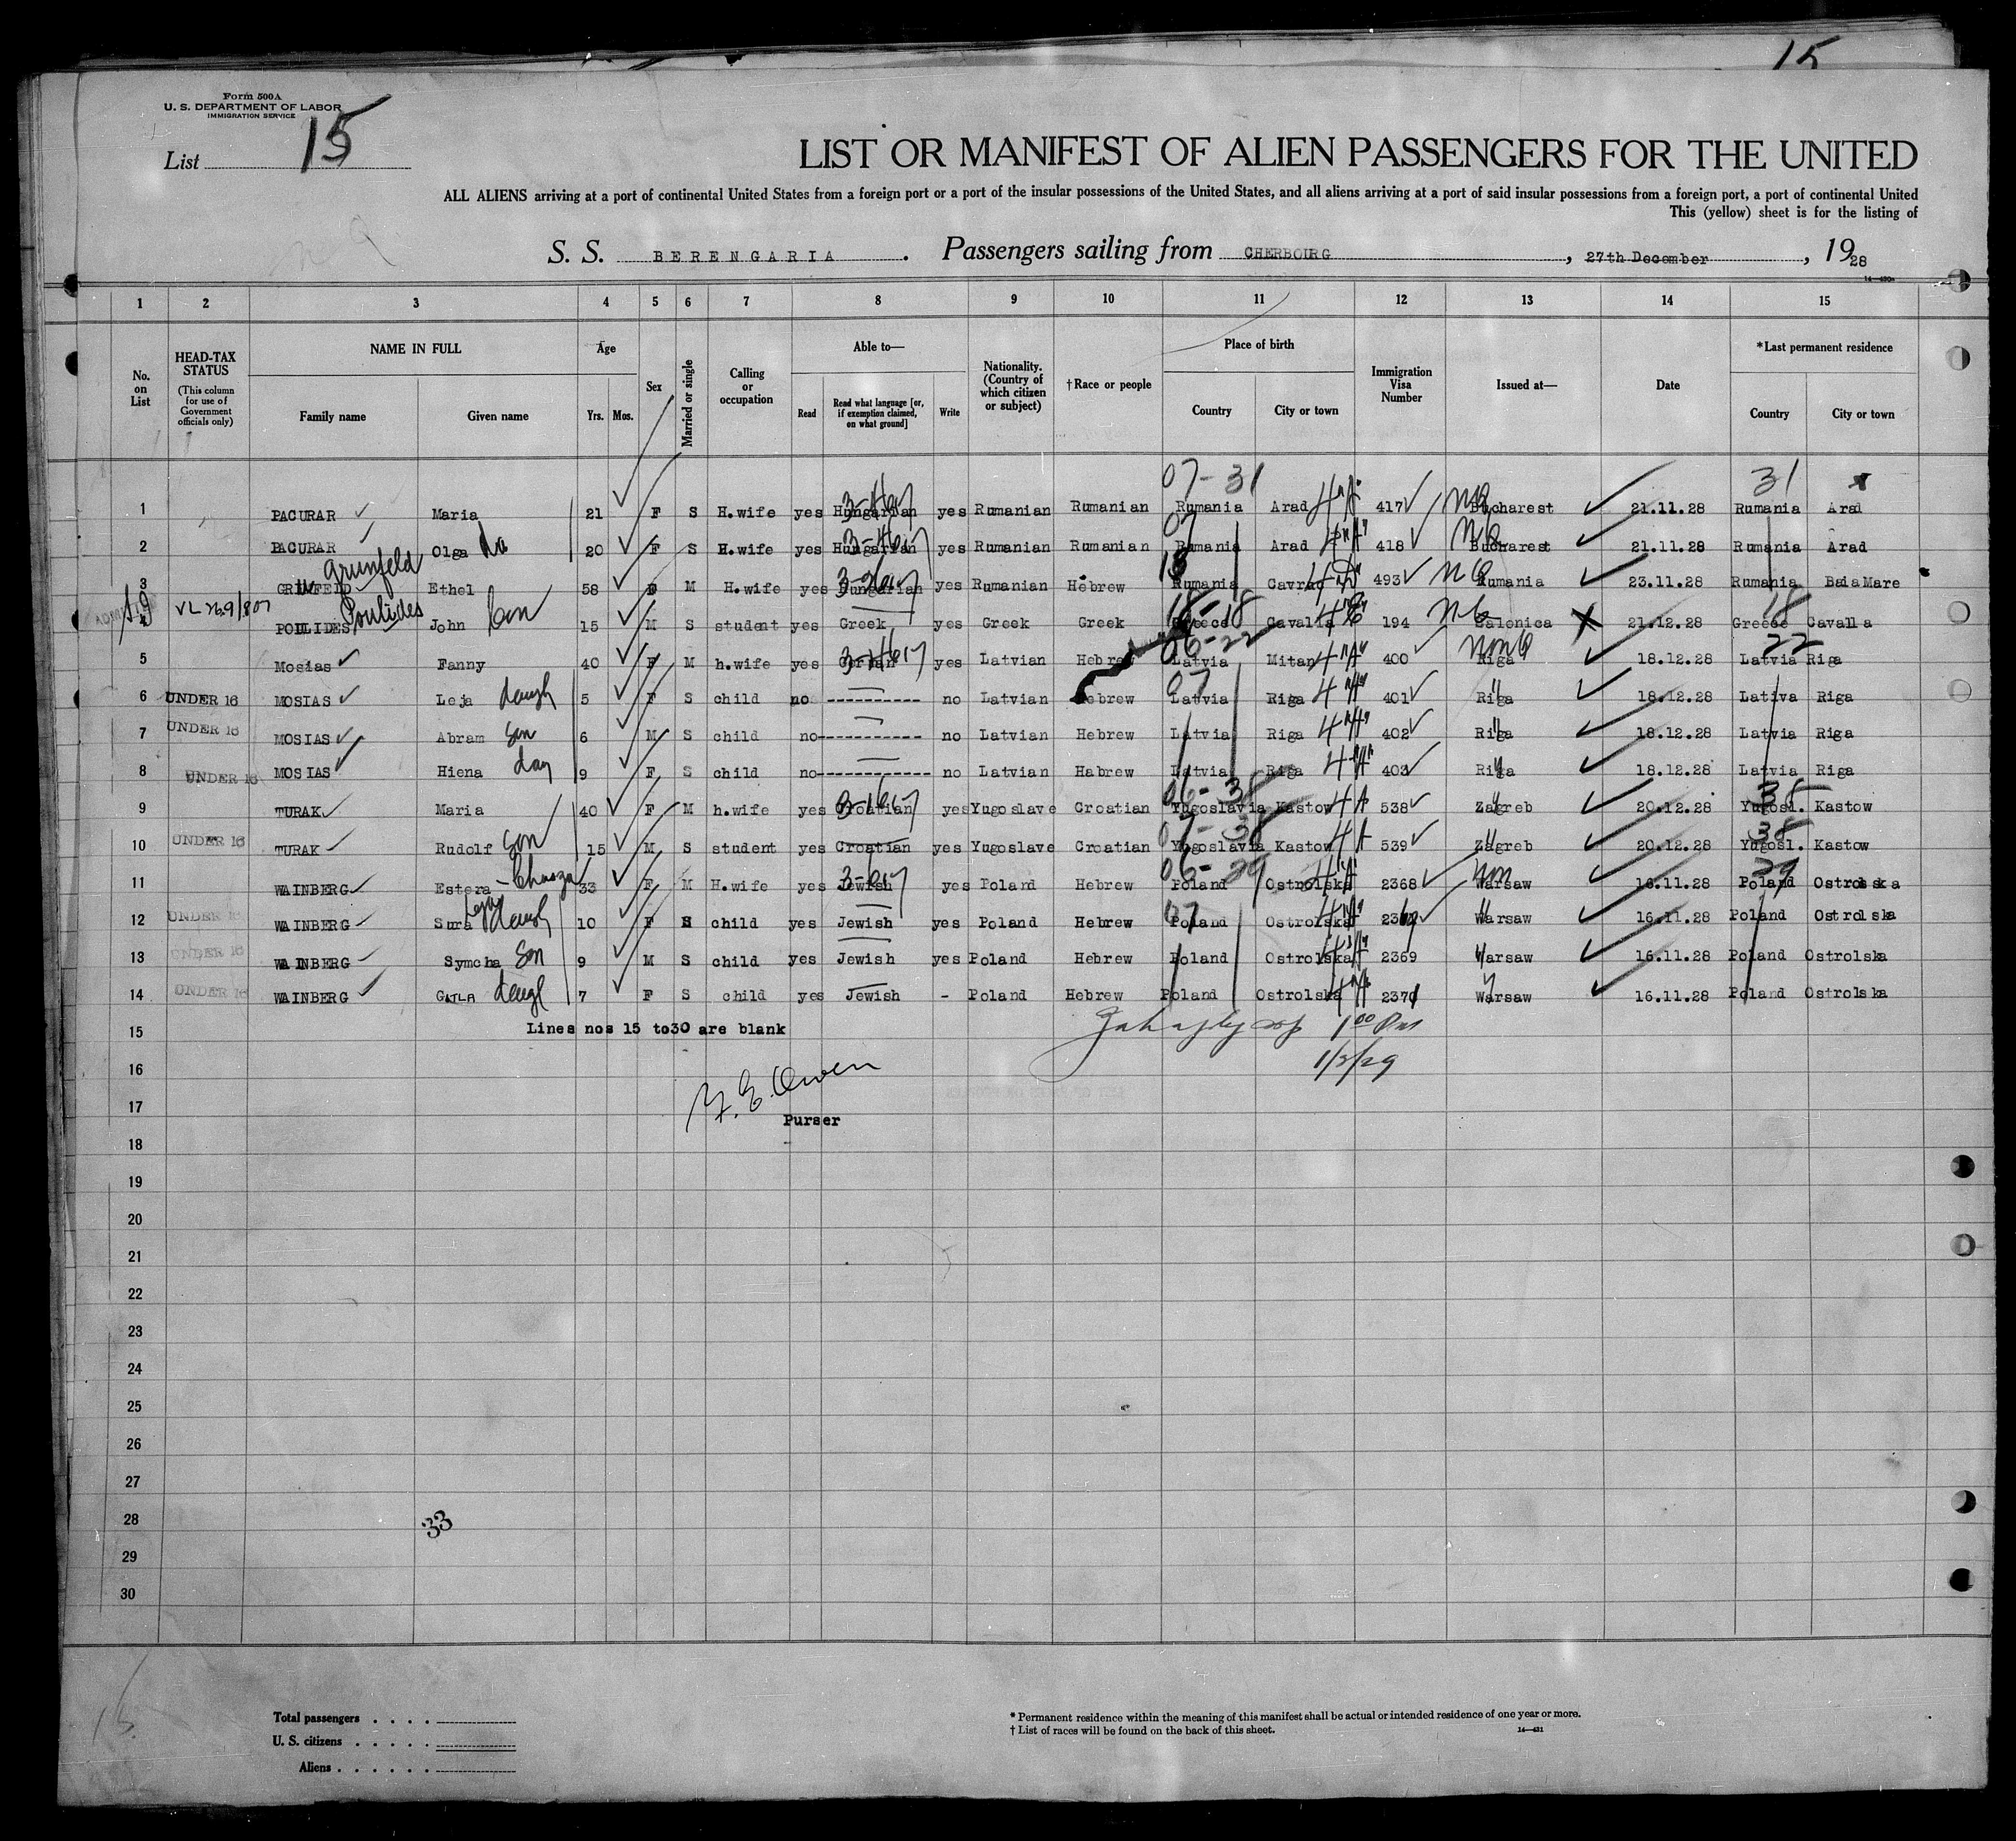 15
Form 500A
U. S. DEPARTMENT OF LABOR
IMMIGRATION SERVICE
List 15
LIST OR MANIFEST OF ALIEN PASSENGERS FOR THE UNITED
ALL ALIENS arriving at a port of continental United States from a foreign port or a port of the insular possessions of the United States, and all aliens arriving at a port of said insular possessions from a foreign port, a port of continental United
This (yellow) sheet is for the listing of
S. S. BERENGARIA. Passengers sailing from CHERBOURG, 27th December, 1928
14—430a
1 2 3 4 5 6 7 8 9 10 11 12 13 14 15
No. on List HEAD-TAX STATUS (This column for use of Government officials only) NAME IN FULL Family name Given name Age Yrs. Mos. Sex Married or single Calling or occupation Able to— Read Read what language [or, if exemption claimed, on what ground] Write Nationality. (Country of which citizen or subject) †Race or people Place of birth Country City or town Immigration Visa Number Issued at— Date *Last permanent residence Country City or town
07-31 31
1 PACURAR Maria 21 F S H.wife yes Hungarian yes Rumanian Rumanian Rumania Arad 417 Bucharest 21.11.28 Rumania Arad
2 PACURAR Olga 20 F S H.wife yes Hungarian yes Rumanian Rumanian Rumania Arad 418 Bucharest 21.11.28 Rumania Arad
Grunfeld
3 Ethel 58 M H.wife yes Hungarian yes Rumanian Hebrew Rumania 493 Rumania 23.11.28 Rumania Baia Mare
Poulides
4 VL 269/807 John 15 M S student yes Greek yes Greek Greek Greece Cavalla 194 Salonica 21.12.28 Greece Cavalla
06-22 22
5 Mosias Fanny 40 F M h.wife yes German yes Latvian Hebrew Latvia Mitan 400 Riga 18.12.28 Latvia Riga
6 UNDER 16 MOSIAS Leja daugh 5 F S child no ---------- no Latvian Hebrew Latvia Riga 401 Riga 18.12.28 Lativa Riga
7 UNDER 16 MOSIAS Abram son 6 M S child no ---------- no Latvian Hebrew Latvia Riga 402 Riga 18.12.28 Latvia Riga
8 UNDER 16 MOSIAS Hiena 9 F S child no ---------- no Latvian Habrew Latvia Riga 403 Riga 18.12.28 Latvia Riga
06-38 38
9 TURAK Maria 40 F M h.wife yes Croatian yes Yugoslave Croatian Yugoslavia Kastow 538 Zagreb 20.12.28 Yugosl. Kastow
10 UNDER 16 TURAK Rudolf son 15 M S student yes Croatian yes Yugoslave Croatian Yugoslavia Kastow 539 Zagreb 20.12.28 Yugosl. Kastow
06-29 29
11 WAINBERG Estera 33 F M H.wife yes Jewish yes Poland Hebrew Poland Ostrolska 2368 Warsaw 16.11.28 Poland Ostrolska
12 UNDER 16 WAINBERG Sura daugh 10 F S child yes Jewish yes Poland Hebrew Poland Ostrolska Warsaw 16.11.28 Poland Ostrolska
13 UNDER 16 WAINBERG Symcha son 9 M S child yes Jewish yes Poland Hebrew Poland Ostrolska 2369 Warsaw 16.11.28 Poland Ostrolska
14 UNDER 16 WAINBERG Gatla daugh 7 F S child yes Jewish - Poland Hebrew Poland Ostrolska 2371 Warsaw 16.11.28 Poland Ostrolska
15 Lines nos 15 to30 are blank
16
17
Purser
18
19
20
21
22
23
24
25
26
27
28 33
29
30
Total passengers
U. S. citizens
Aliens
* Permanent residence within the meaning of this manifest shall be actual or intended residence of one year or more.
† List of races will be found on the back of this sheet.
14—431